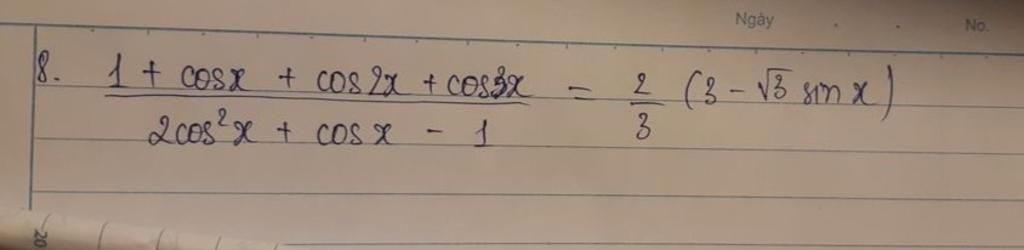 Ngày No.
8. (1 + cosx + cos2x + cos3x) / (2cos²x + cosx - 1) = 2/3 (3 - √3 sin x)
20